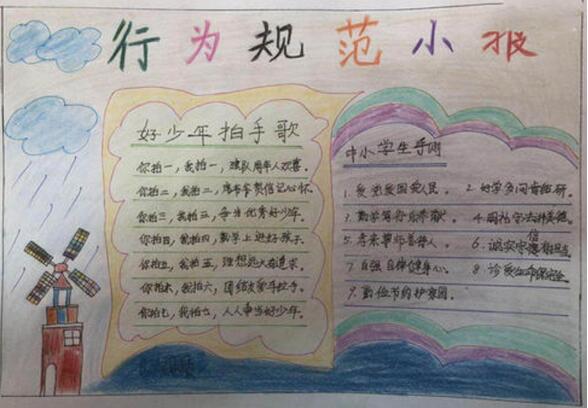 行为规范小报
好少年拍手歌
你拍一,我拍一,建队周年人欢喜。
你拍二,我拍二,廉年家赞信记心怀。
你拍三,我拍三,争当优秀好少年。
你拍四,我拍四,勤学上进好孩子。
你拍五,我拍五,理想远大有追求。
你拍六,我拍六,团结友爱手拉手。
你拍七,我拍七,人人争当好少年。
中小学生守则
1.爱党爱国爱人民。
2.好学多问肯钻研。
3.勤学笃行乐奉献。
4.明礼守法讲美德。
5.孝亲尊师善待人。
6.诚实守信有担当。
7.自强自律健身心。
8.珍爱生命保安全。
9.勤俭节约护家园。